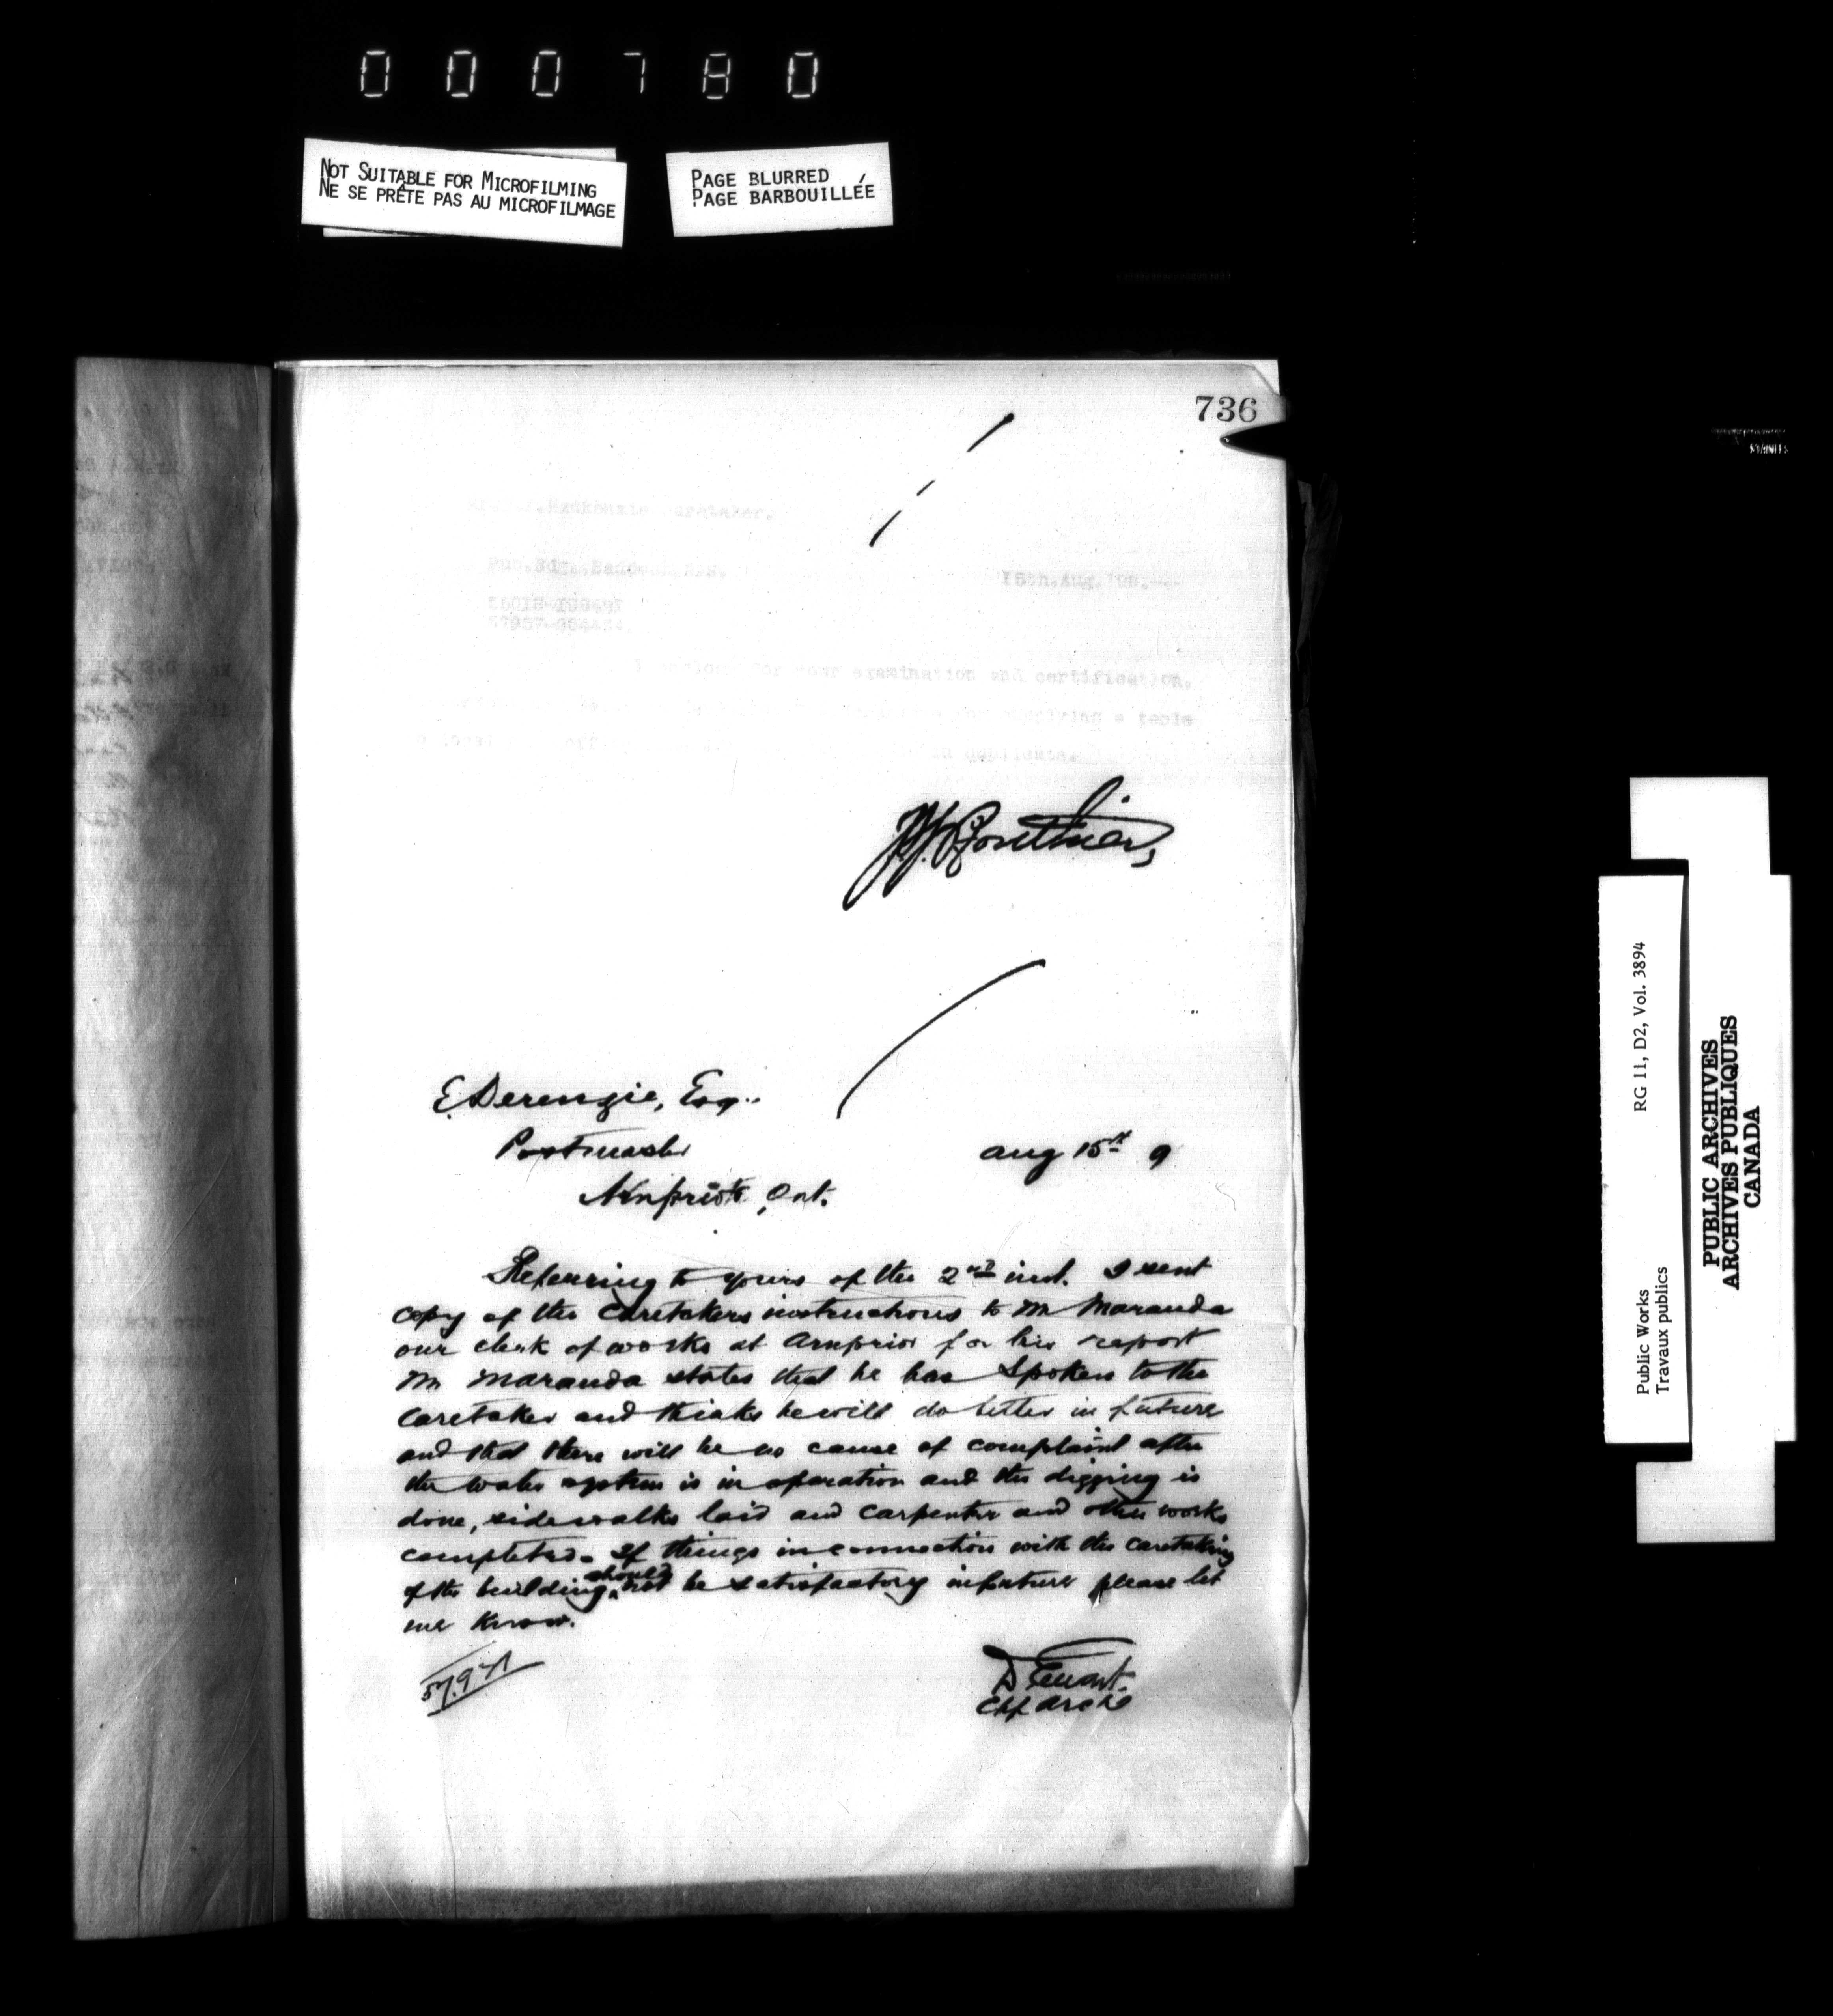 000780
NOT SUITABLE FOR MICROFILMING
NE SE PRÊTE PAS AU MICROFILMAGE
PAGE BLURRED
PAGE BARBOUILLÉE
736
Mackenzie Caretaker.
Pub.Bdg.
16th.Aug.'99.
for your examination and certification,
supplying a table
in duplicate.
E. Derenzie, Esq.
Postmaster
Aug 15th 9
Arnprior, Ont.
Referring to yours of the 2nd inst. I sent
copy of the caretakers instructions to Mr Maranda
our clerk of works at Arnprior for his report
Mr Maranda states that he has spoken to the
caretaker and thinks he will do better in future
and that there will be no cause of complaint after
the water system is in operation and the digging is
done, sidewalks laid and carpenter and other works
completed. If things in connection with the caretaking
of the building should not be satisfactory in future please let
me know.
D Ewart.
Chf Archt
Public Works
Travaux publics
RG 11, D2, Vol. 3894
PUBLIC ARCHIVES
ARCHIVES PUBLIQUES
CANADA